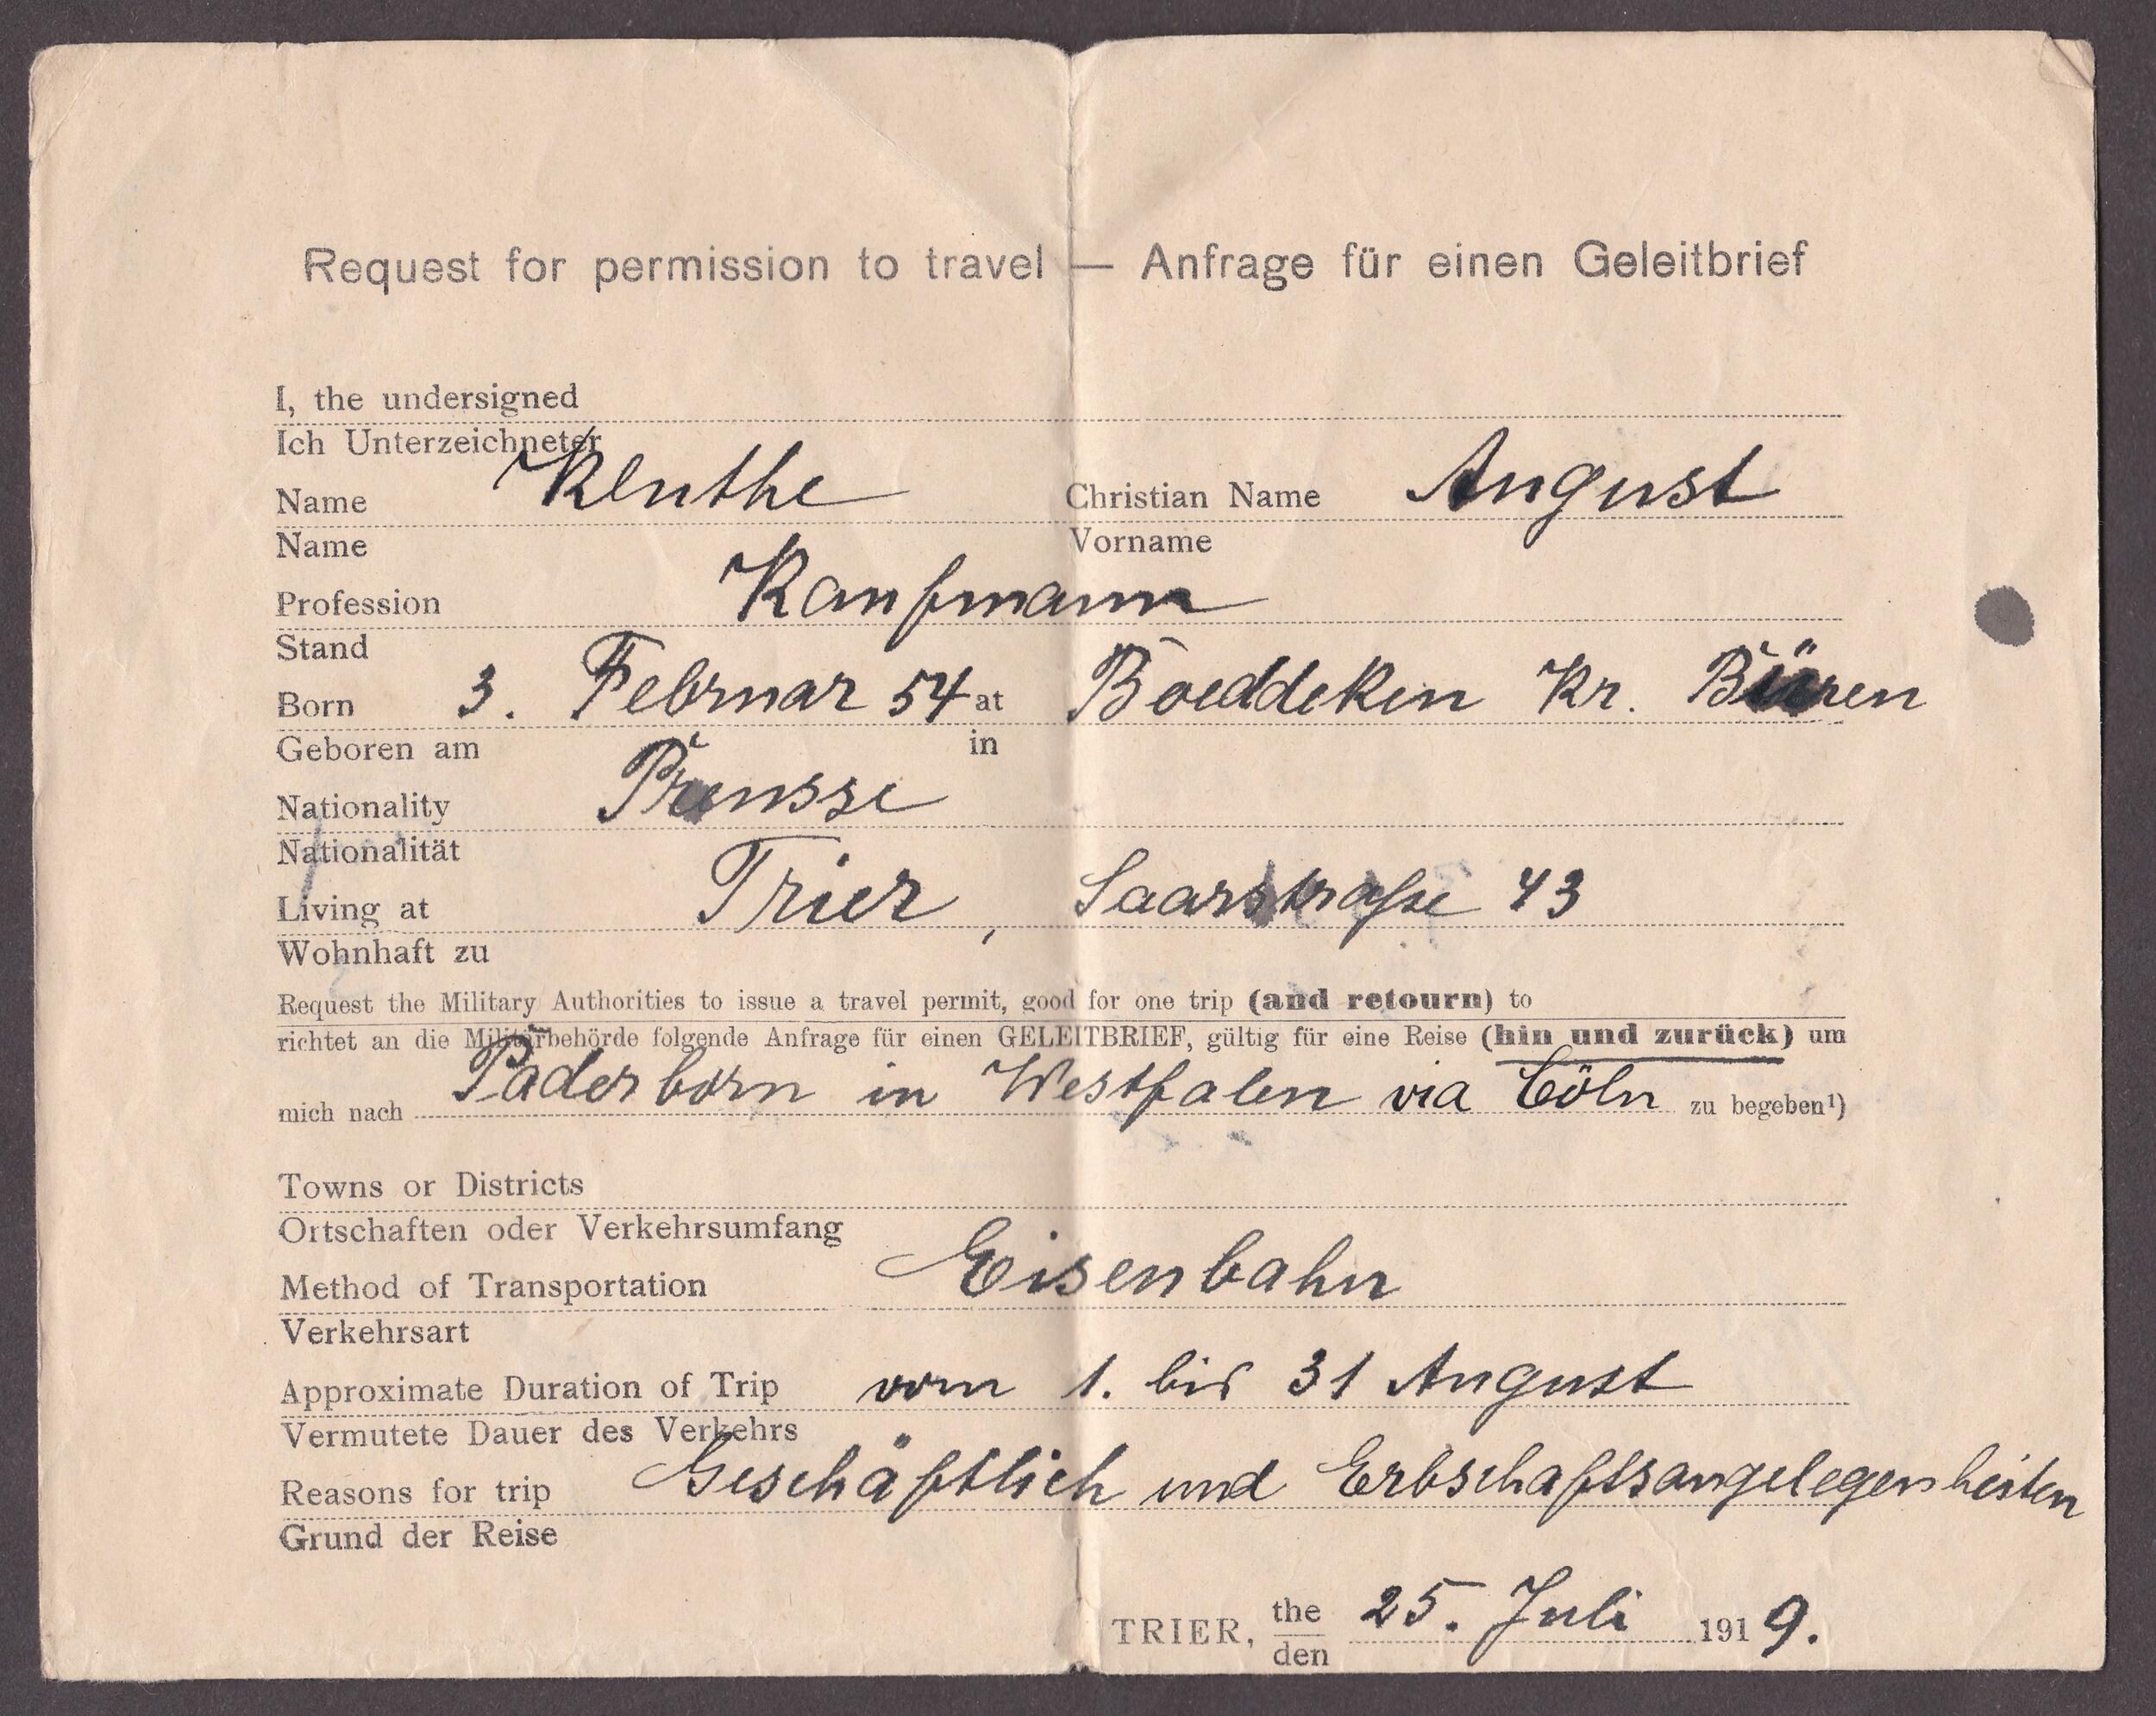 Request for permission to travel — Anfrage für einen Geleitbrief
I, the undersigned
Ich Unterzeichneter
Name Kluthe Christian Name August
Name Vorname
Profession Kaufmann
Stand
Born 3. Februar 54 at Boeddeken Kr. Büren
Geboren am in
Nationality Preusse
Nationalität
Living at Trier, Saarstraße 43
Wohnhaft zu
Request the Military Authorities to issue a travel permit, good for one trip (and retourn) to
richtet an die Militärbehörde folgende Anfrage für einen GELEITBRIEF, gültig für eine Reise (hin und zurück) um
mich nach Paderborn in Westfalen via Cöln zu begeben¹)
Towns or Districts
Ortschaften oder Verkehrsumfang
Method of Transportation Eisenbahn
Verkehrsart
Approximate Duration of Trip vom 1. bis 31 August
Vermutete Dauer des Verkehrs
Reasons for trip Geschäftlich und Erbschaftsangelegenheiten
Grund der Reise
TRIER, the 25. Juli 1919.
den